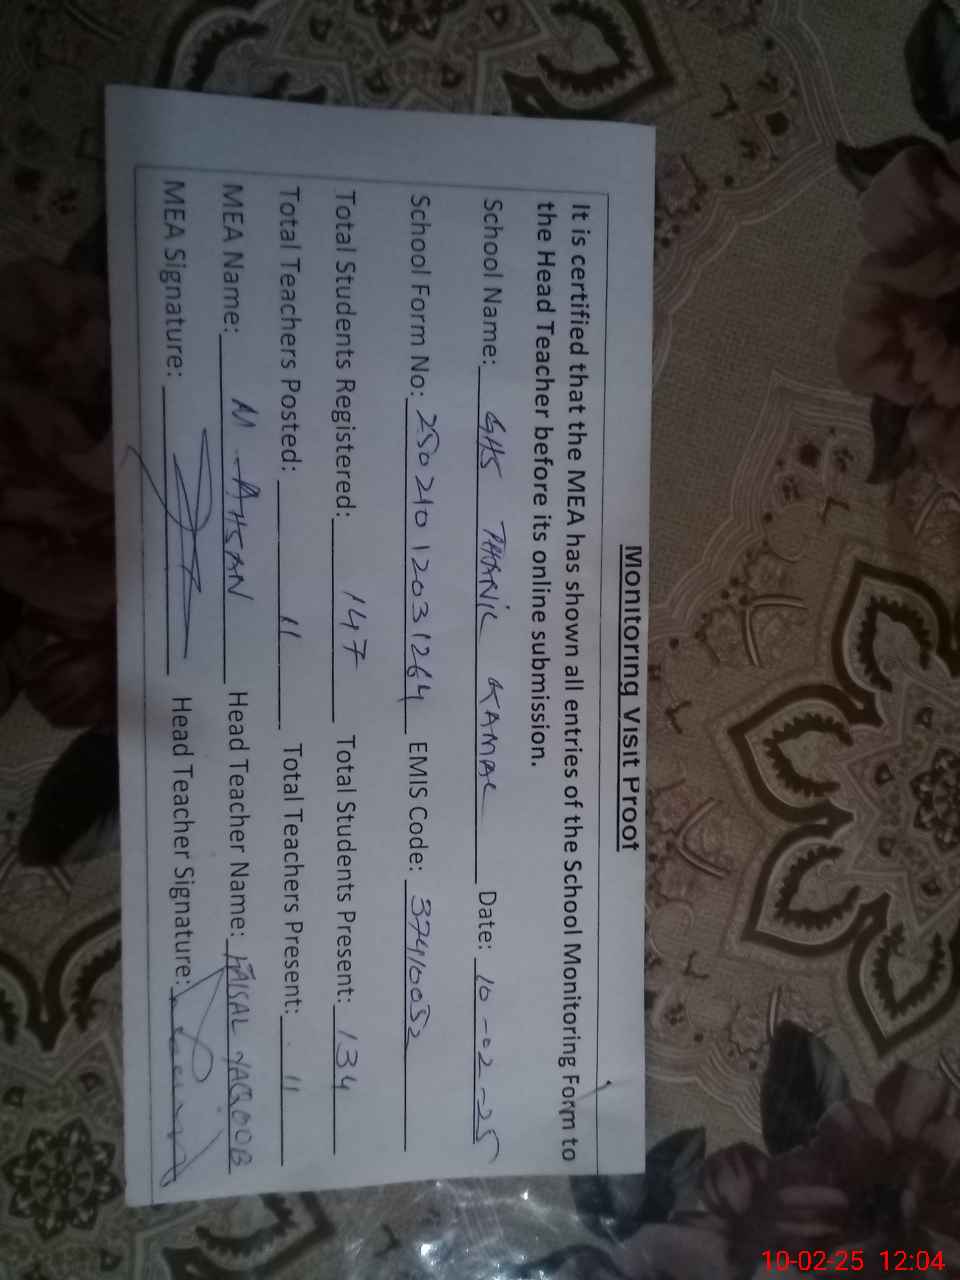 Monitoring Visit Proof
It is certified that the MEA has shown all entries of the School Monitoring Form to
the Head Teacher before its online submission.
School Name: GHS THANIL KAMAL Date: 10-02-25
School Form No: 25021012031264 EMIS Code: 37410052
Total Students Registered: 147 Total Students Present: 134
Total Teachers Posted: 11 Total Teachers Present: 11
MEA Name: M. AHSAN Head Teacher Name: FAISAL YAQOOB
MEA Signature: Head Teacher Signature:
10-02-25 12:04